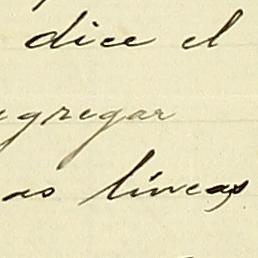 dice el
agregar
as líneas